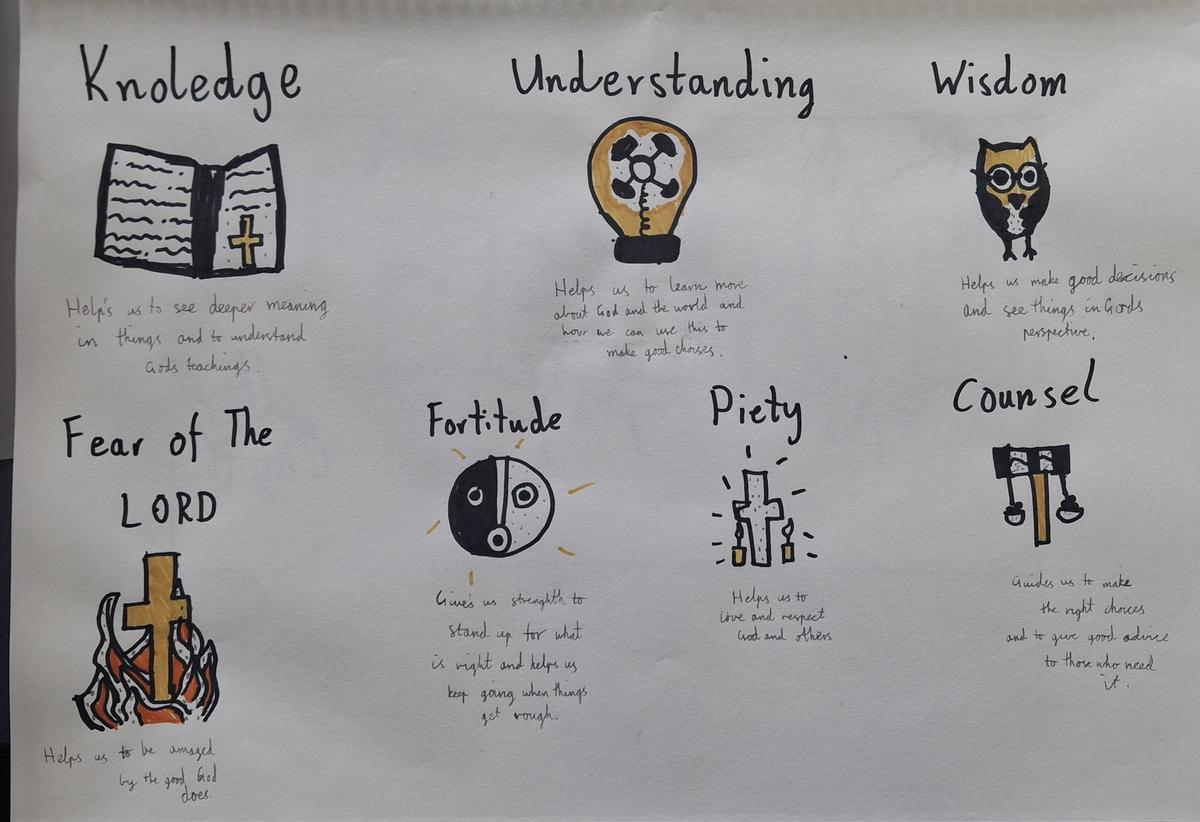 Knoledge
Help's us to see deeper meaning
in things and to understand
Gods teachings.
Understanding
Helps us to learn more
about God and the world and
how we can use this to
make good choises.
Wisdom
Helps us make good decisions
and see things in Gods
perspective.
Fear of The
LORD
Helps us to be amazed
by the good God
does.
Fortitude
Give's us strenghth to
stand up for what
is right and helps us
keep going when things
get rough.
Piety
Helps us to
love and respect
God and others
Counsel
Guides us to make
the right choices
and to give good advice
to those who need
it.